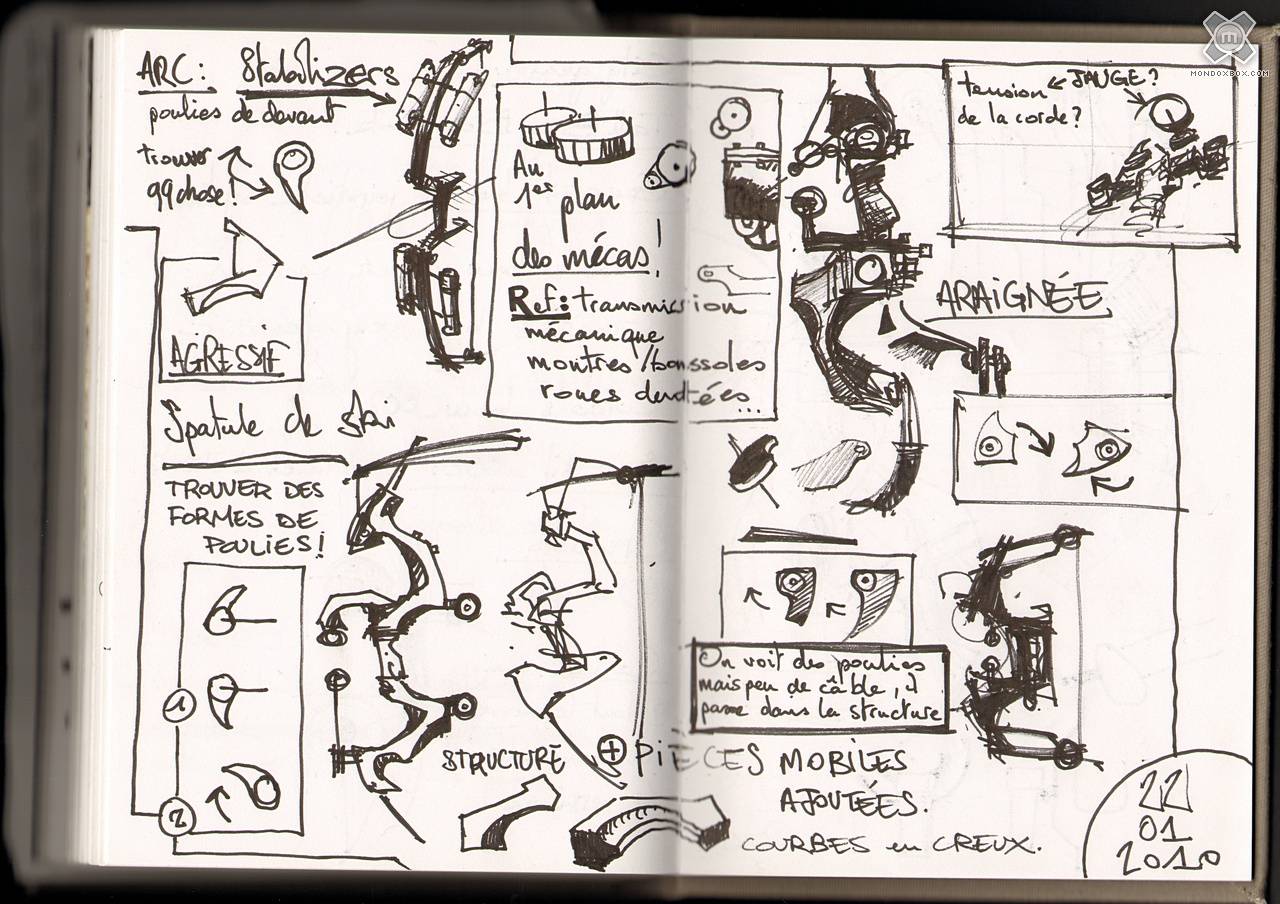 ARC: Stabilizers
poulies de devant
trouver
qqchose!
AGRESSIF
Spatule de ski
TROUVER DES
FORMES DE
POULIES!
1
2
Au
1er plan
des mécas!
Ref: transmission
mécanique
montres/boussoles
roues dentées...
tension ← JAUGE?
de la corde?
ARAIGNÉE
On voit des poulies
mais peu de câble, il
passe dans la structure
STRUCTURE + PIÈCES MOBILES
AJOUTÉES.
COURBES en CREUX.
22
01
2010
m
MONDOXBOX.COM